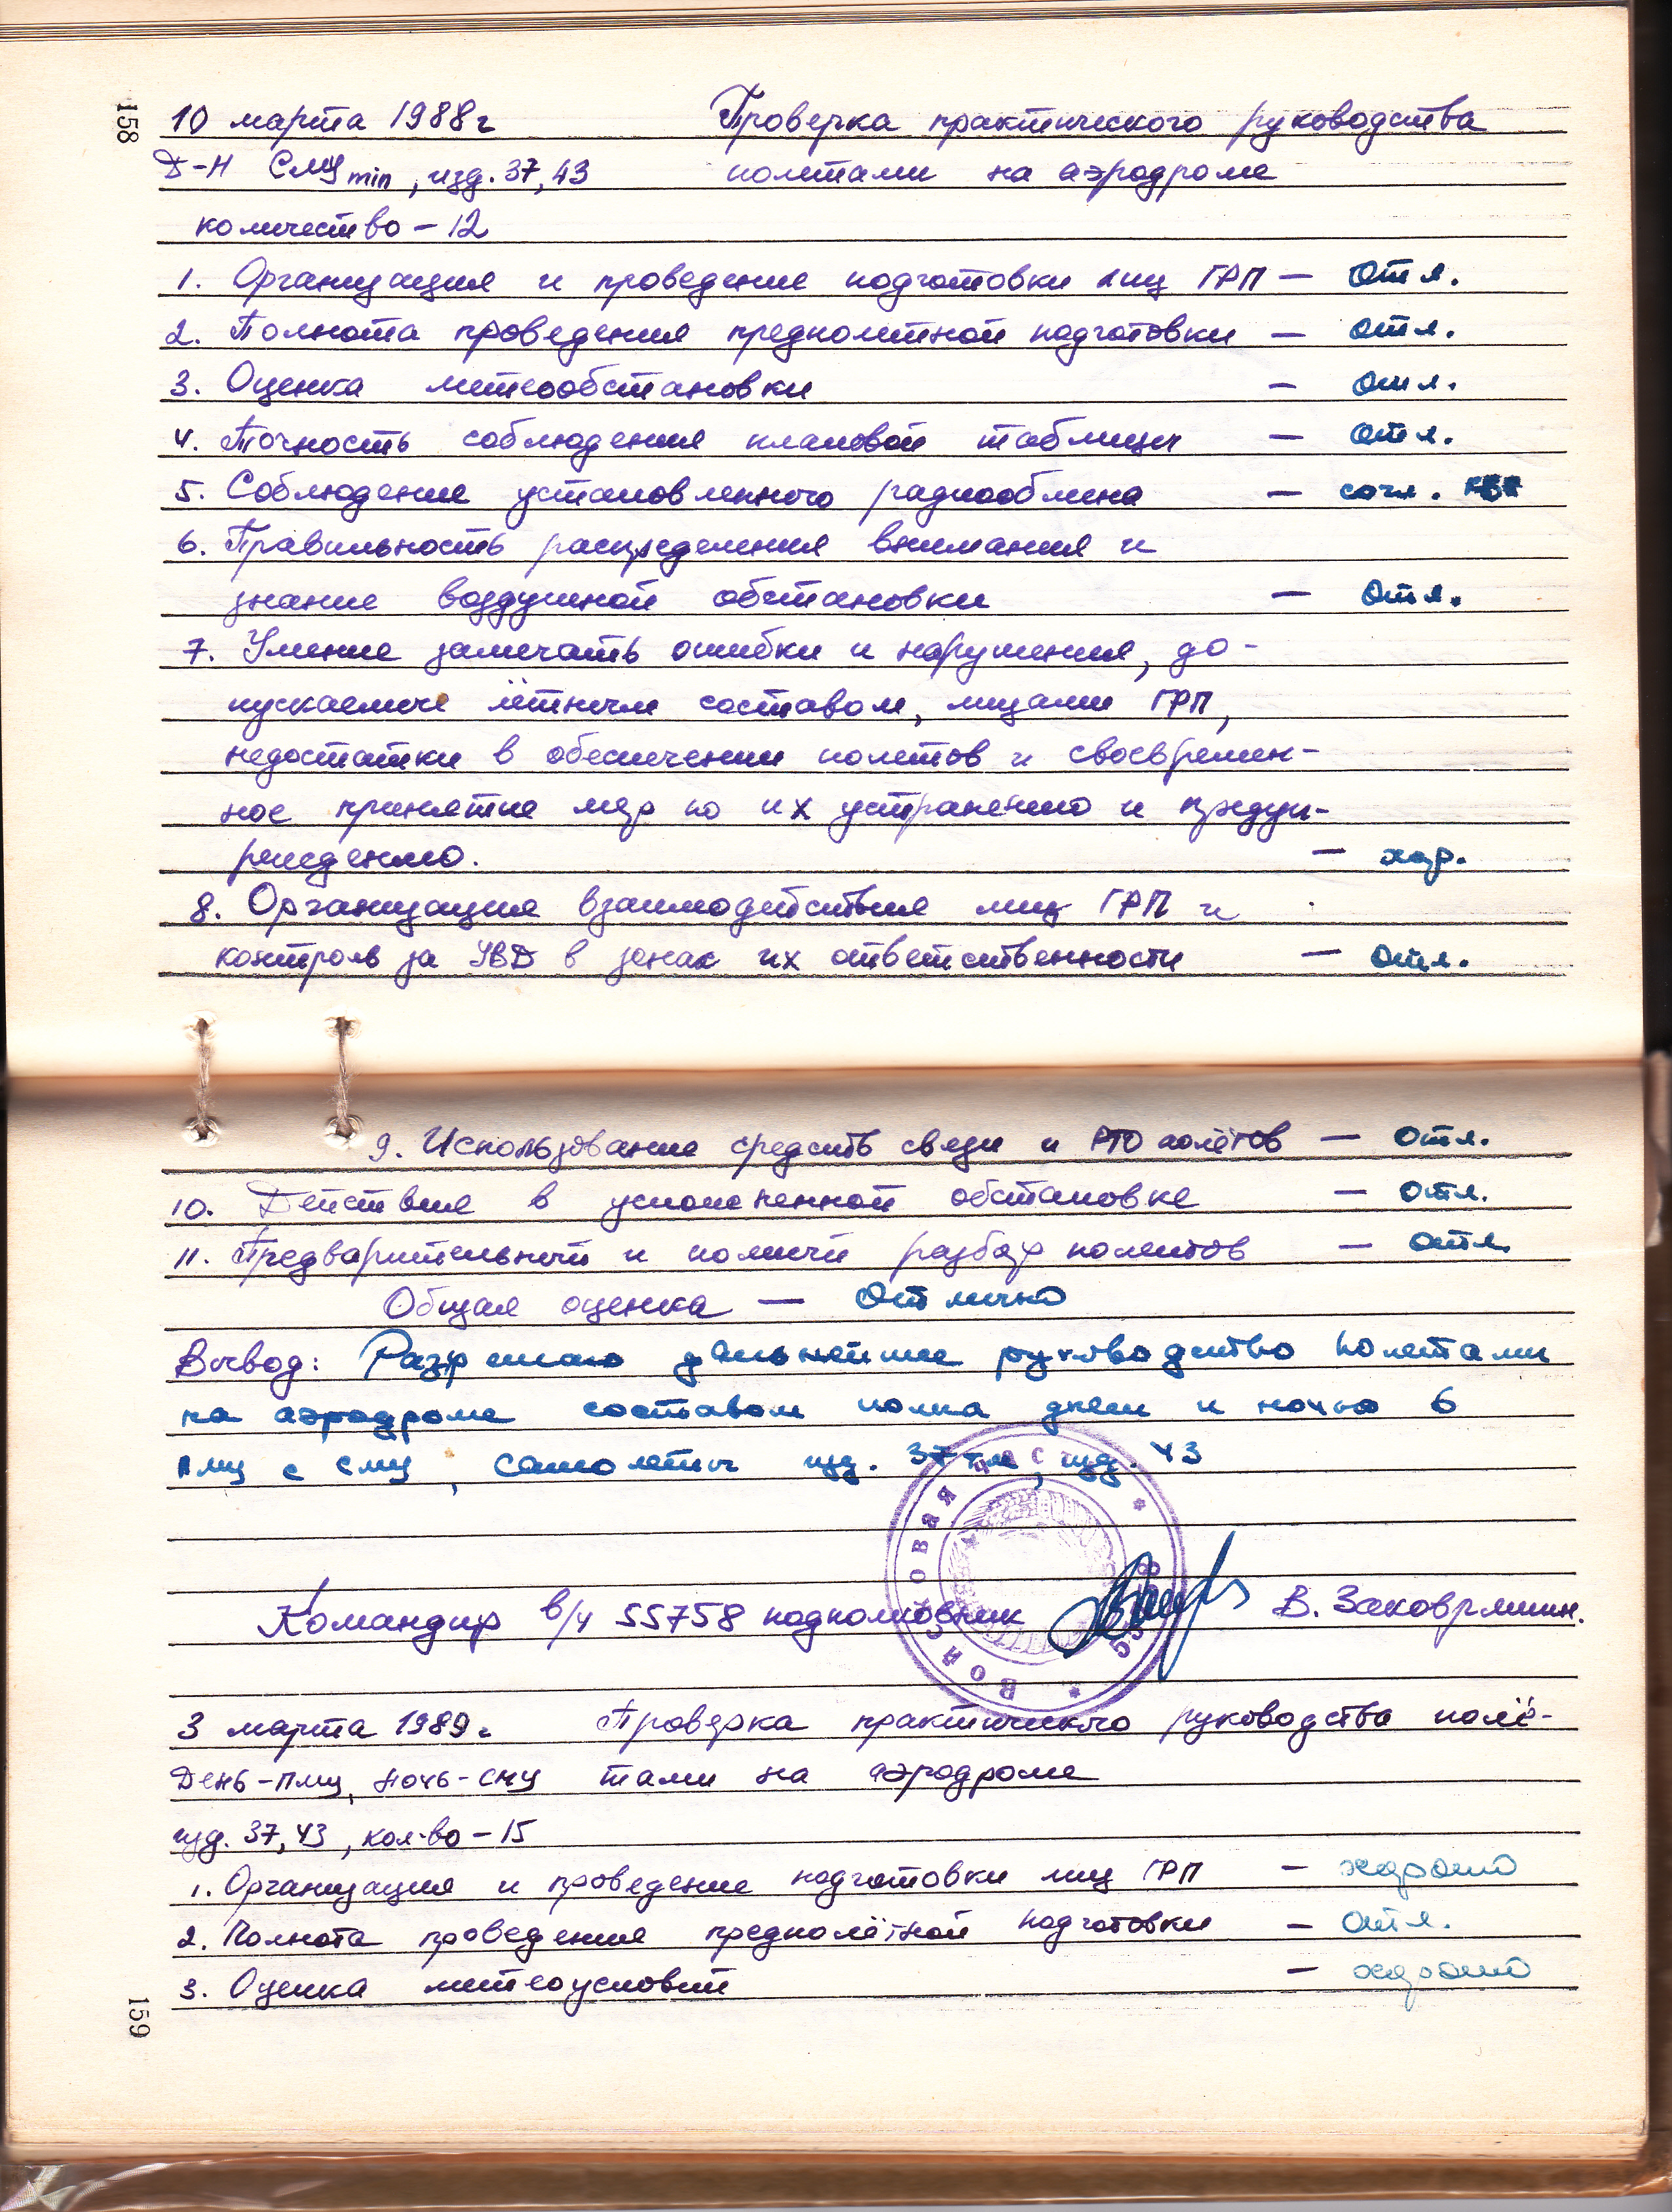 158
10 марта 1988г Проверка практического руководства
Д-Н СМУmin, изд. 37, 43 полетами на аэродроме
количество – 12
1. Организация и проведение подготовки лиц ГРП – отл.
2. Полнота проведения предполетной подготовки – отл.
3. Оценка метеообстановки – отл.
4. Точность соблюдения плановой таблицы – отл.
5. Соблюдение установленного радиообмена –
6. Правильность распределения внимания и
знание воздушной обстановки – отл.
7. Умение замечать ошибки и нарушения, до-
пускаемые лётным составом, лицами ГРП,
недостатки в обеспечении полетов и своевремен-
ное принятие мер по их устранению и предуп-
реждению. – хор.
8. Организация взаимодействия лиц ГРП и
контроль за УВД в зонах их ответственности – отл.
9. Использование средств связи и РТО полётов – отл.
10. Действия в усложненной обстановке – отл.
11. Предварительный и полный разбор полетов – отл.
Общая оценка – Отлично
Вывод: Разрешаю дальнейшее руководство полетами
на аэродроме составом полка днем и ночью в
ПМУ с СМУ, самолеты изд. 37 , изд. 43
Командир в/ч 55758 подполковник В. Заковряшин.
ВОЙСКОВАЯ ЧАСТЬ
3 марта 1989г Проверка практического руководства полё-
День-ПМУ, Ночь-СМУ тами на аэродроме
изд. 37, 43, кол-во – 15
1. Организация и проведение подготовки лиц ГРП – хорошо
2. Полнота проведения предполётной подготовки – отл.
3. Оценка метеоусловий – хорошо
159